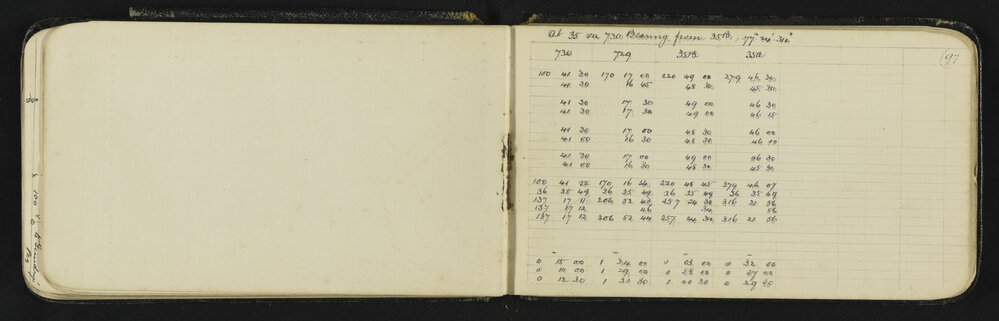 At 35 on 730. Bearing from 35B. 77° 44' 34"
97
730 729 35B 35a
100 41 30 170 17 00 220 49 00 279 46 30
41 30 16 45 48 30 45 30
41 30 17 30 49 00 46 30
41 30 17 30 49 00 46 15
41 30 17 00 48 30 46 00
41 00 16 30 48 30 46 00
41 30 17 00 49 00 46 30
41 00 16 30 48 30 45 30
100 41 22 170 16 54 220 48 45 279 46 07
36 35 49 36 35 49 36 35 49 36 35 49
137 17 11 206 52 43 257 24 34 316 21 56
137 17 12 44 34 56
137 17 12 206 52 44 257 24 34 316 21 56
0 15 00 1 34 00 1 03 00 0 32 00
0 10 00 1 29 00 0 58 00 0 27 00
0 12 30 1 31 30 1 00 30 0 29 30